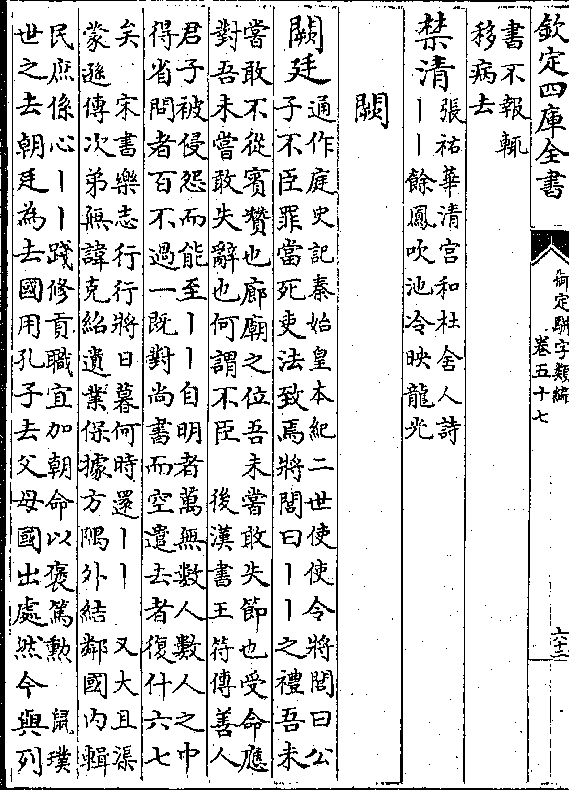 欽定四庫全書
御定駢字類編
卷五十七
六十二
書不報輒
移病去
禁清
張祜華清宫和杜舍人詩
丨丨餘鳳吹池冷映龍光
闕
闕廷
通作庭史記秦始皇本紀二世使使令將閭曰公
子不臣罪當死吏法致焉將閭曰丨丨之禮吾未
嘗敢不從賓贊也廊廟之位吾未嘗敢失節也受命應
對吾未嘗敢失辭也何謂不臣　後漢書王符傳善人
君子被侵怨而能至丨丨自明者萬無數人數人之中
得省問者百不過一既對尚書而空遣去者復什六七
矣　宋書樂志行行將日暮何時還丨丨　又大且渠
蒙遜傳次弟無諱克紹遺業保據方隅外結鄰國内輯
民庶係心丨丨踐修貢職宜加朝命以褒篤勲　鼠璞
世之去朝廷為去國用孔子去父母國出處然今與列